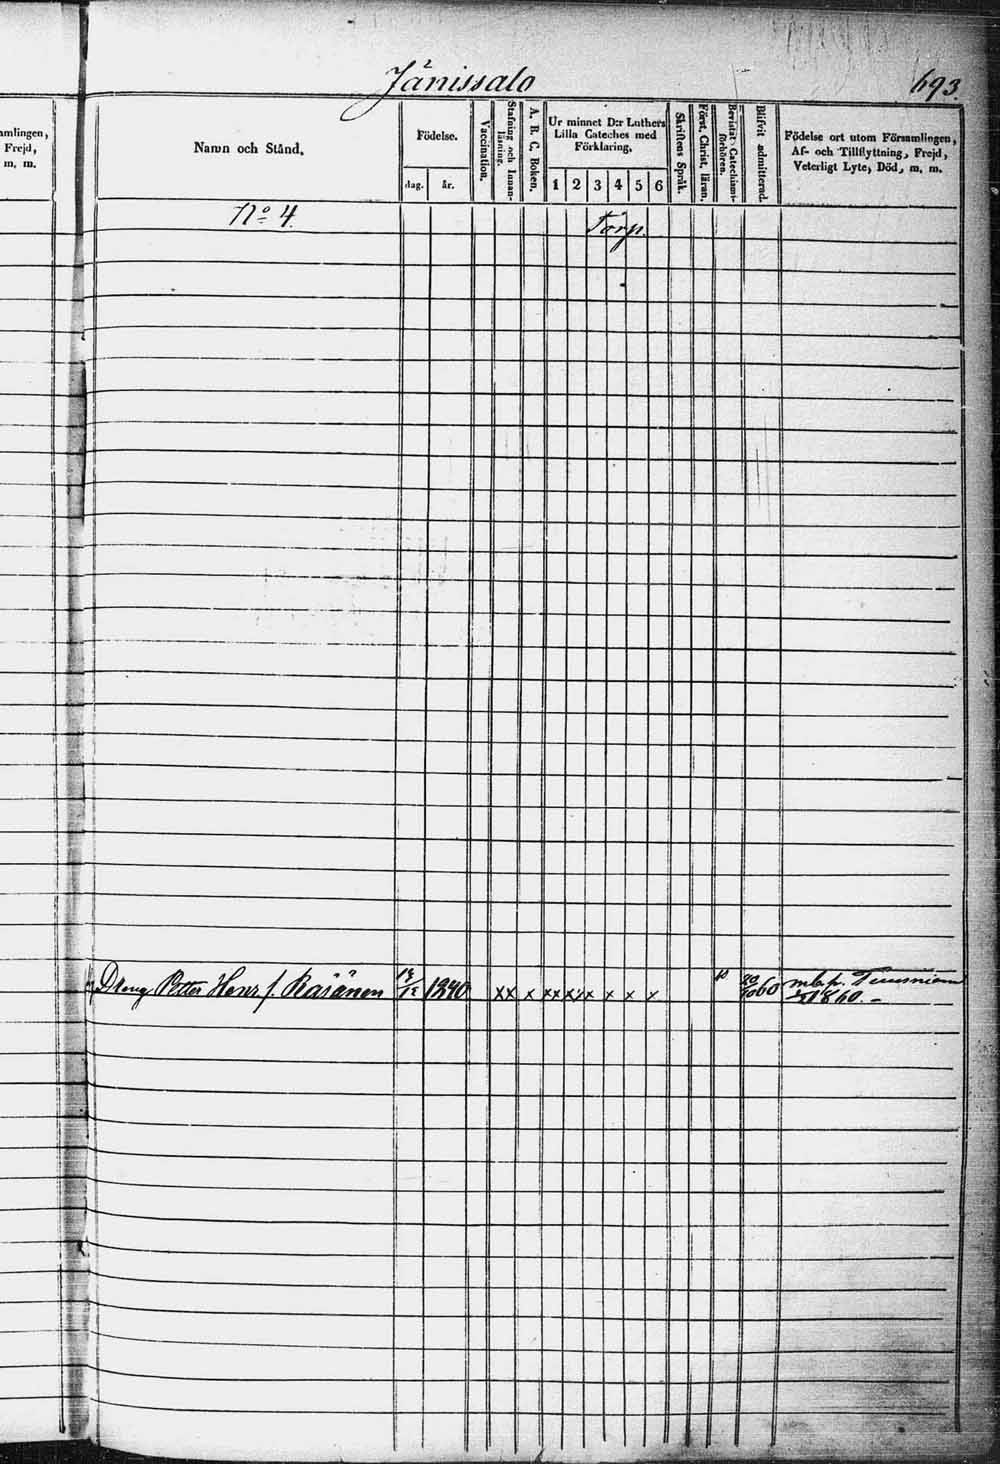 Jänissalo
693.
amlingen,
Frejd,
m. m.
Namn och Stånd.
Födelse.
dag. år.
Vaccination.
Stafning och Innan-
läsning.
A. B. C. Boken.
Ur minnet D:r Luthers
Lilla Cateches med
Förklaring.
1 2 3 4 5 6
Skriftens Språk.
Först. Christ. läran.
Bevistat Catechismi-
förhören.
Blifvit admitterad.
Födelse ort utom Församlingen,
Af- och Tillflyttning, Frejd,
Veterligt Lyte, Död, m. m.
No 4.
Torp.
Dreng Petter Henr. s. Räsänen /12 1840 xx x xx x x x x x x 60 1860.-